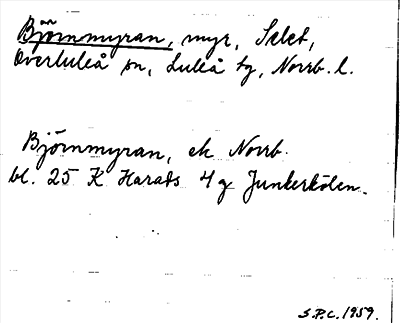 Björnmyran, myr, Selet,
Överluleå sn, Luleå tg, Norrb. l.
Björnmyran, ek Norrb.
bl. 25 K Harads 4 g Junkerkölen.
S.P.C. 1959.